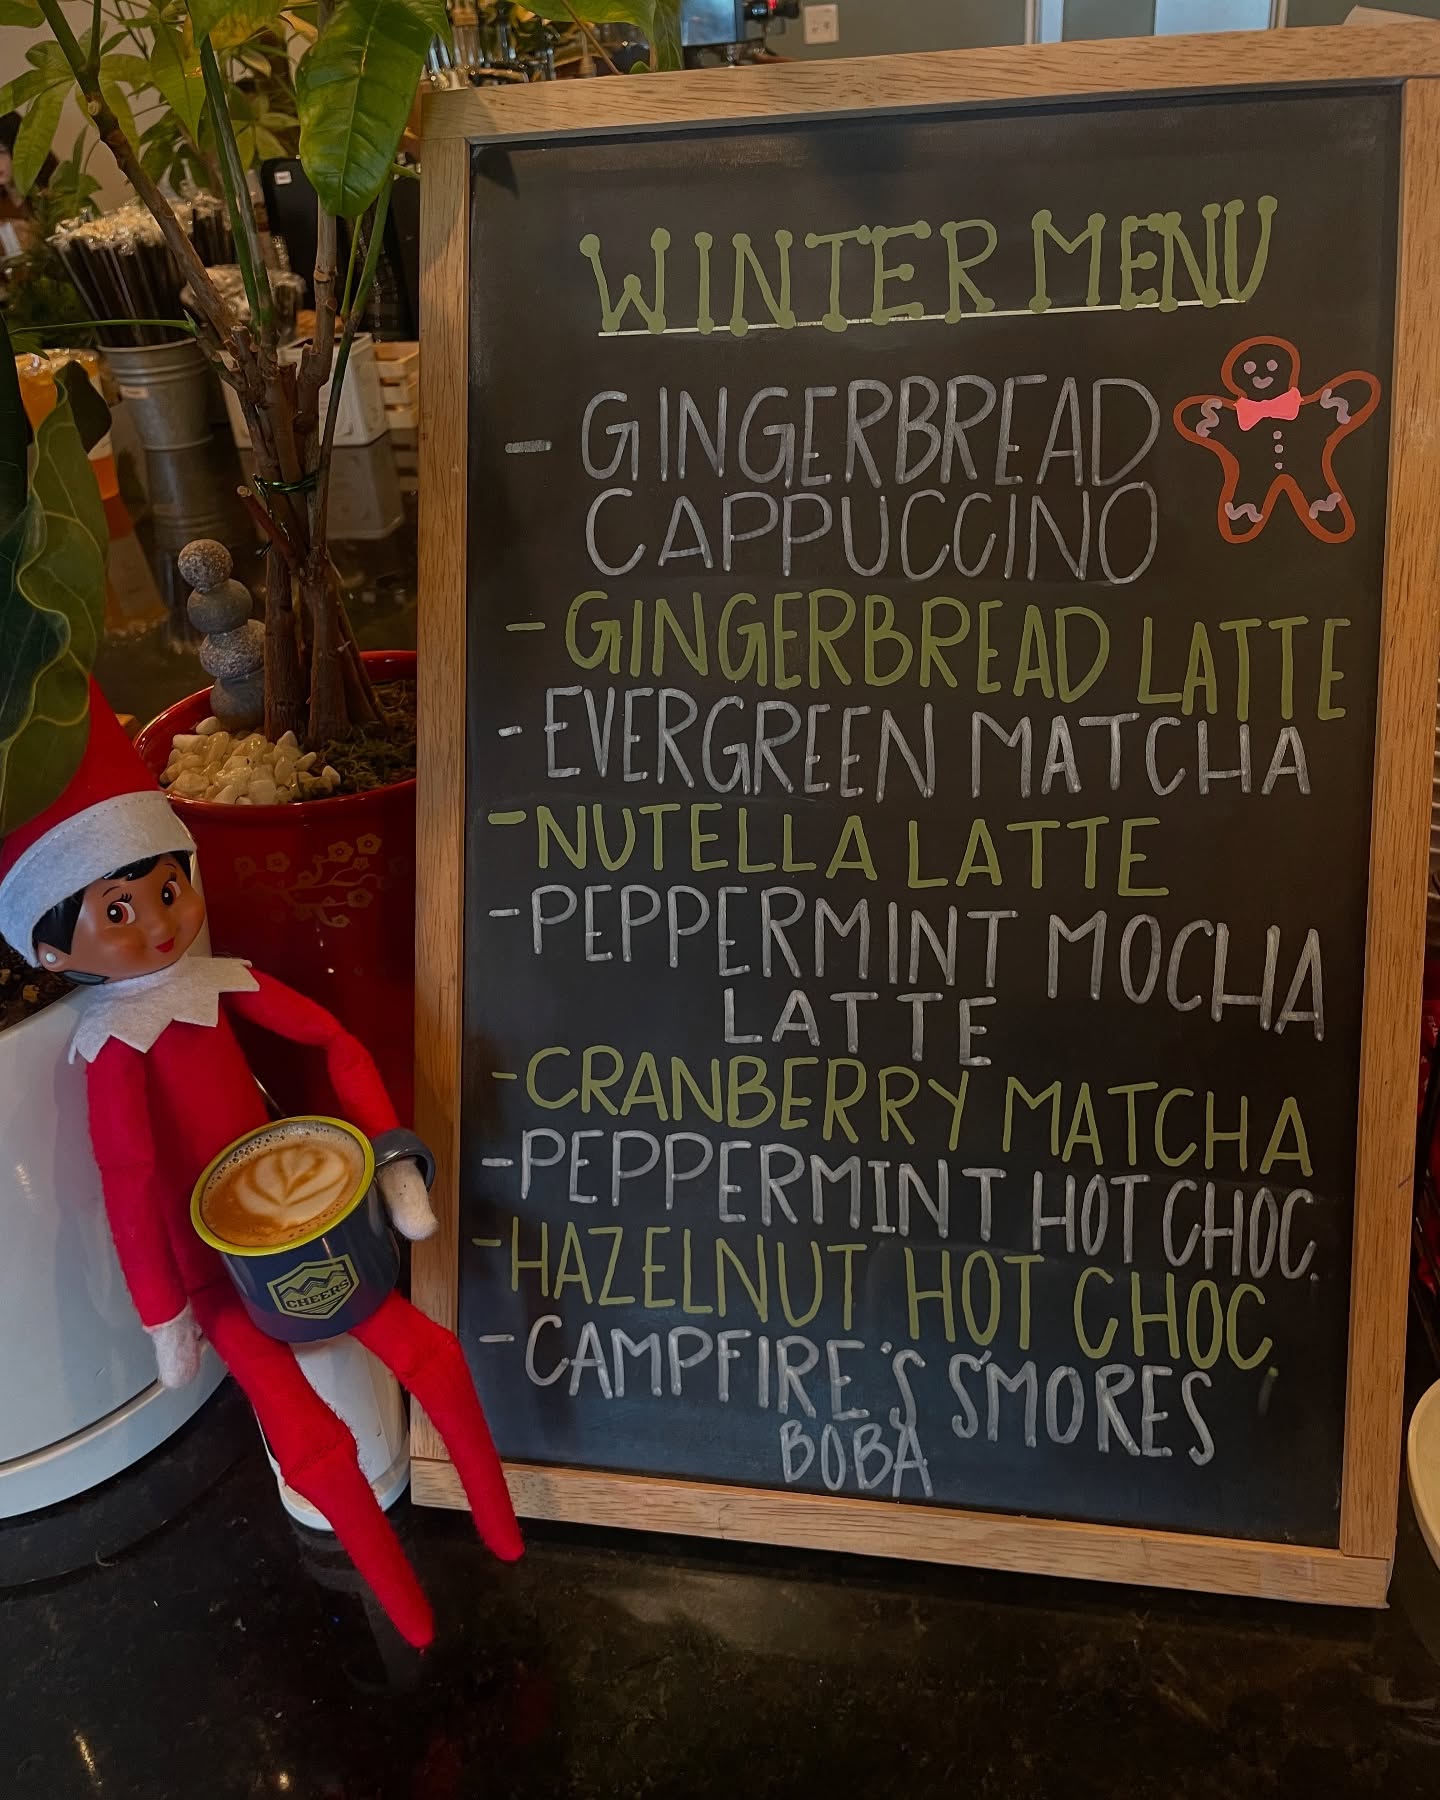 WINTER MENU
- GINGERBREAD
CAPPUCCINO
- GINGERBREAD LATTE
- EVERGREEN MATCHA
- NUTELLA LATTE
- PEPPERMINT MOCHA
LATTE
- CRANBERRY MATCHA
- PEPPERMINT HOT CHOC.
- HAZELNUT HOT CHOC.
- CAMPFIRE'S S'MORES
BOBA
CHEERS